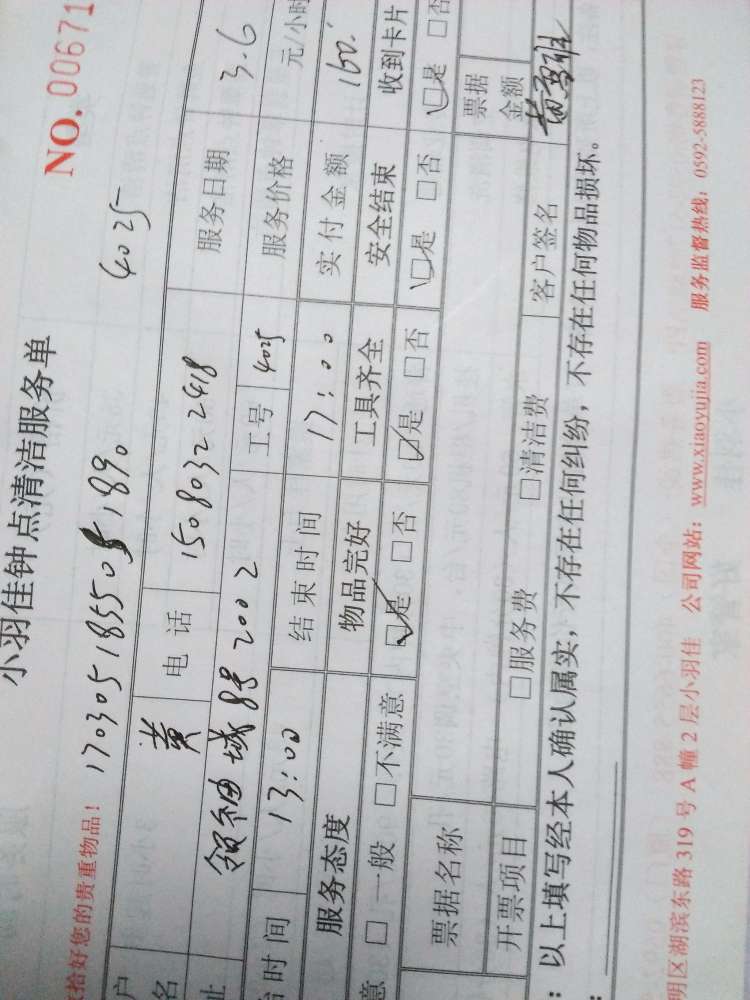 小羽佳钟点清洁服务单
NO. 00671
拾好您的贵重物品! 1703051855051890 4025
户名 黄 电话 15080322418 服务日期 3.6
址 领袖城8号2002 工号 4025 服务价格 元/小时
时间 13:00 结束时间 17:00 实付金额 160.
服务态度 物品完好 工具齐全 安全结束 收到卡片
意 □一般 □不满意 □是 □否 □是 □否 □是 □否 □是 □否
票据名称 票据金额
开票项目 □服务费 □清洁费 客户签名
: 以上填写经本人确认属实,不存在任何纠纷,不存在任何物品损坏。
:
明区湖滨东路319号A幢2层小羽佳 公司网站: www.xiaoyujia.com 服务监督热线: 0592-5888123